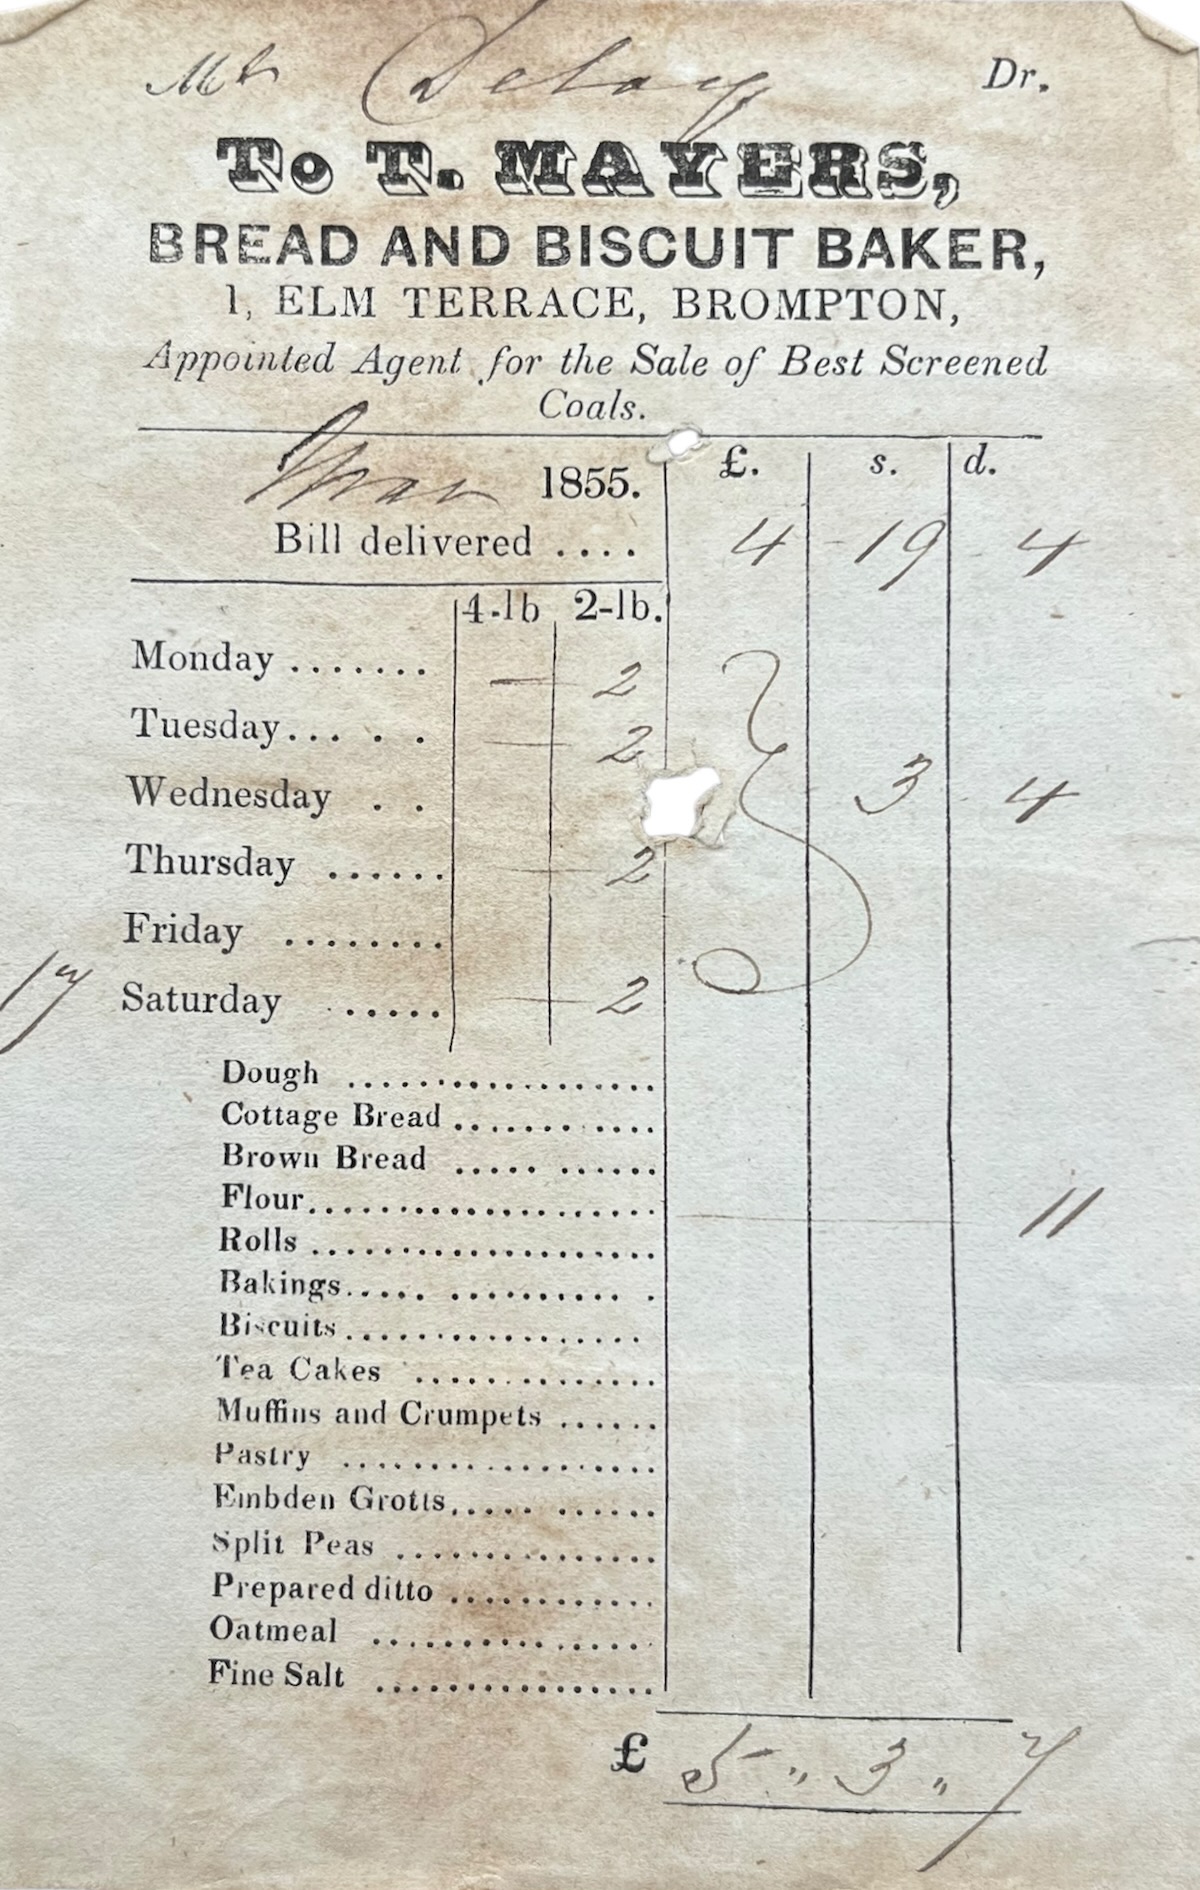 Mr Delay Dr.
To T. MAYERS,
BREAD AND BISCUIT BAKER,
1, ELM TERRACE, BROMPTON,
Appointed Agent for the Sale of Best Screened
Coals.
Mar 1855. £. s. d.
Bill delivered .... 4 19 4
4-lb 2-lb.
Monday ....... — 2
Tuesday... . . — 2
Wednesday . . 3 4
Thursday ...... — 2
Friday ........
17 Saturday ..... — 2
Dough ....................
Cottage Bread ............
Brown Bread ...........
Flour....................... 11
Rolls .......................
Bakings..... .......... .
Biscuits....................
Tea Cakes ..............
Muffins and Crumpets ......
Pastry ..................
Embden Grotts..... ......
Split Peas ...............
Prepared ditto ............
Oatmeal ................
Fine Salt ................
£ 5 " 3 " 7